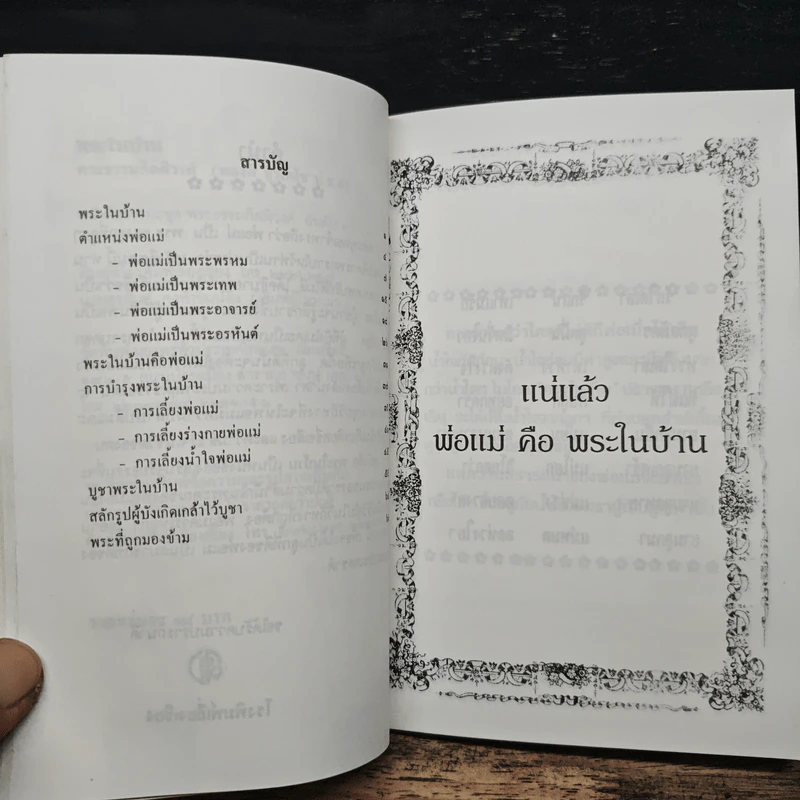 สารบัญ
พระในบ้าน
ตำแหน่งพ่อแม่
- พ่อแม่เป็นพระพรหม
- พ่อแม่เป็นพระเทพ
- พ่อแม่เป็นพระอาจารย์
- พ่อแม่เป็นพระอรหันต์
พระในบ้านคือพ่อแม่
การบำรุงพระในบ้าน
- การเลี้ยงพ่อแม่
- การเลี้ยงร่างกายพ่อแม่
- การเลี้ยงน้ำใจพ่อแม่
บูชาพระในบ้าน
สลักรูปผู้บังเกิดเกล้าไว้บูชา
พระที่ถูกมองข้าม
แน่แล้ว
พ่อแม่ คือ พระในบ้าน